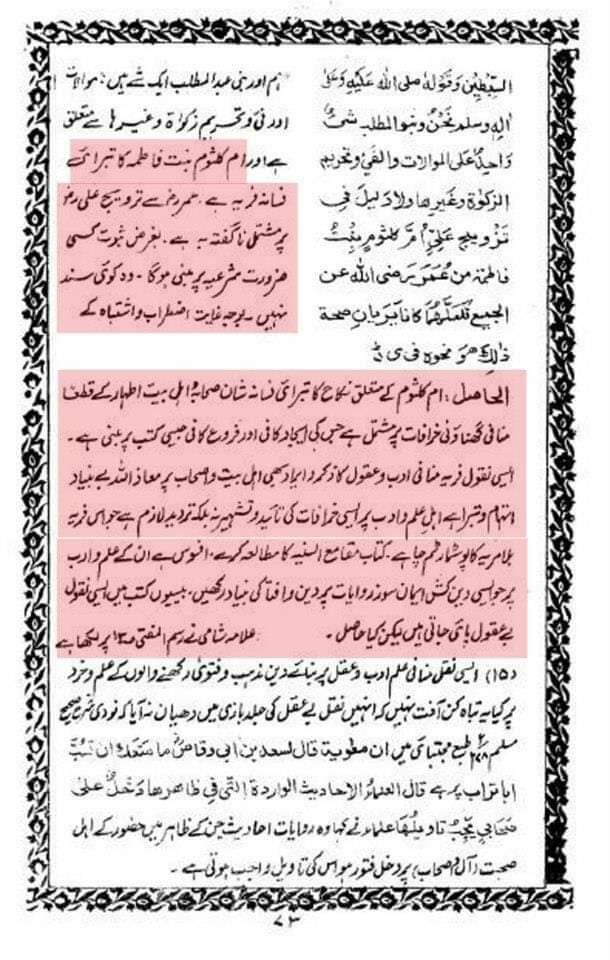 السبطين وقوله صلى الله عليه وعلى
اله وسلم نحن وبنو المطلب شئ
واحد على الموالات والفئ وتحريم
الزكوة وغيرها ولا دليل فى
تزويج على ام كلثوم بنت
فاطمة من عمر رضى الله عن
الجميع فلعلهما كانا يريان صحة
ذلك هو نحوه فى ى ڈ
ہم اور بنی عبدالمطلب ایک شے ہیں: موالات
اور فئ و تحریم زکوٰۃ وغیرہا سے متعلق
ہے اور ام کلثوم بنت فاطمہ کا تبرائی
فسانہ فریہ ہے۔ عمرؓ سے تزویج علیؓ
پر مشتمل ناگفتہ بہ ہے۔ بغرض ثبوت کسی
ضرورت شرعیہ پر مبنی ہوگا۔ وہ کوئی سند
نہیں۔ بوجہ غایت اضطراب و اشتباہ کے
الحاصل: ام کلثوم کے متعلق نکاح کا تبرائی فسانہ شان صحابہ و اہل بیت اطہار کے قطعاً
منافی گھناؤنی خرافات پر مشتمل ہے جس کی ایجاد کافی اور فروع کافی جیسی کتب پر مبنی ہے۔
ایسی نقول فریہ منافی ادب و عقول کا ذکر اہل بیت و اصحاب پر معاذ اللہ بے بنیاد
اتہام و تبرا ہے اہل علم و ادب پر ایسی خرافات کی تائید و تشہیر نہ بلکہ تردید لازم ہے جو اس فریہ
بلا مریہ کا پوسٹمارٹم چاہے۔ کتاب مقامع السنیہ کا مطالعہ کرے، افسوس ہے ان کے علم و ادب
پر جو ایسی دین کش ایمان سوز روایات پر دین و افتا کی بنیاد رکھیں، بیسیوں کتب میں ایسی نقول
بے عقول پائی جاتی ہیں لیکن کیا حاصل۔ علامہ شامی نے رسم المفتی ص۱۳ پر لکھا ہے
(۱۵) ایسی نقل منافی علم ادب و عقل پر بنائے دین مذہب و فتویٰ رکھنے والوں کے علم و خرد
پر کیا یہ تباہ کن آفت نہیں کہ انہیں نقل بے عقل کی جلد بازی میں دھیان نہ آیا کہ نودی شرح صحیح
مسلم ۲/۲۷۸ طبع مجتبائی میں ان معوية قال لسعد بن ابی وقاص ما منعك ان تسب
ابا تراب پر ہے قال العلماء الاحاديث الواردة التى فى ظاهرها دخل على
صحابى يجب تاويلها علماء نے کہا وہ روایات احادیث جن کے ظاہر میں حضور کے اہل
صحبت (آل و صحاب) پر دخل فتور ہو اس کی تاویل واجب ہوتی ہے۔
۷۳